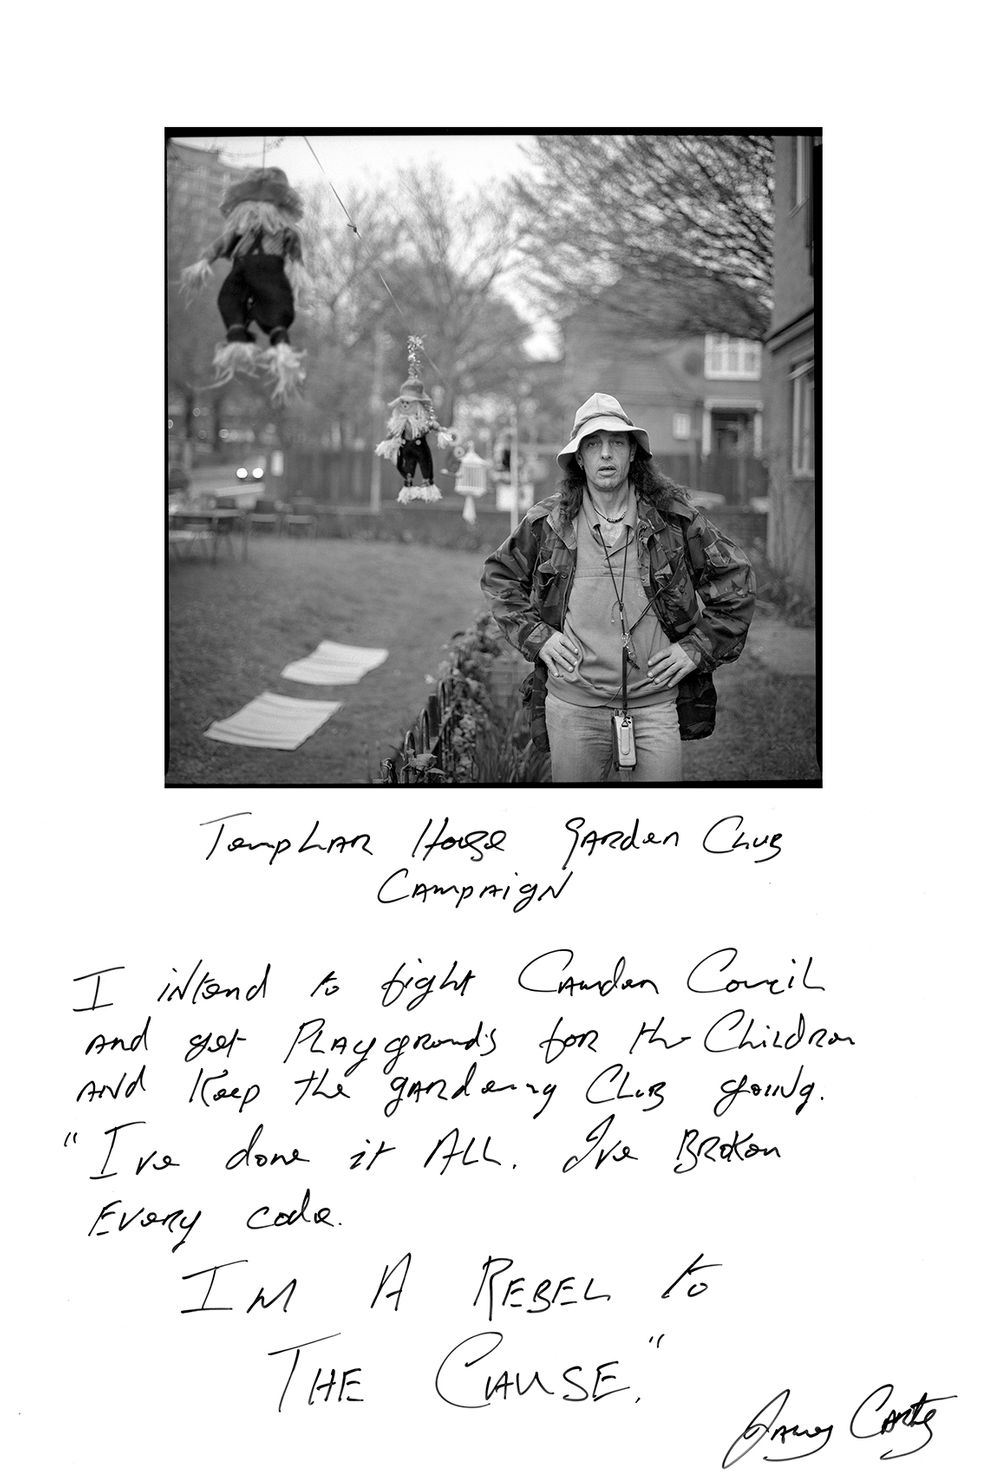 Templar House Garden Club
Campaign
I intend to fight Camden Council
and get Playgrounds for the Children
and keep the gardening Club going.
"I've done it All. I've Broken
Every code.
I'm A Rebel to
The Cause."